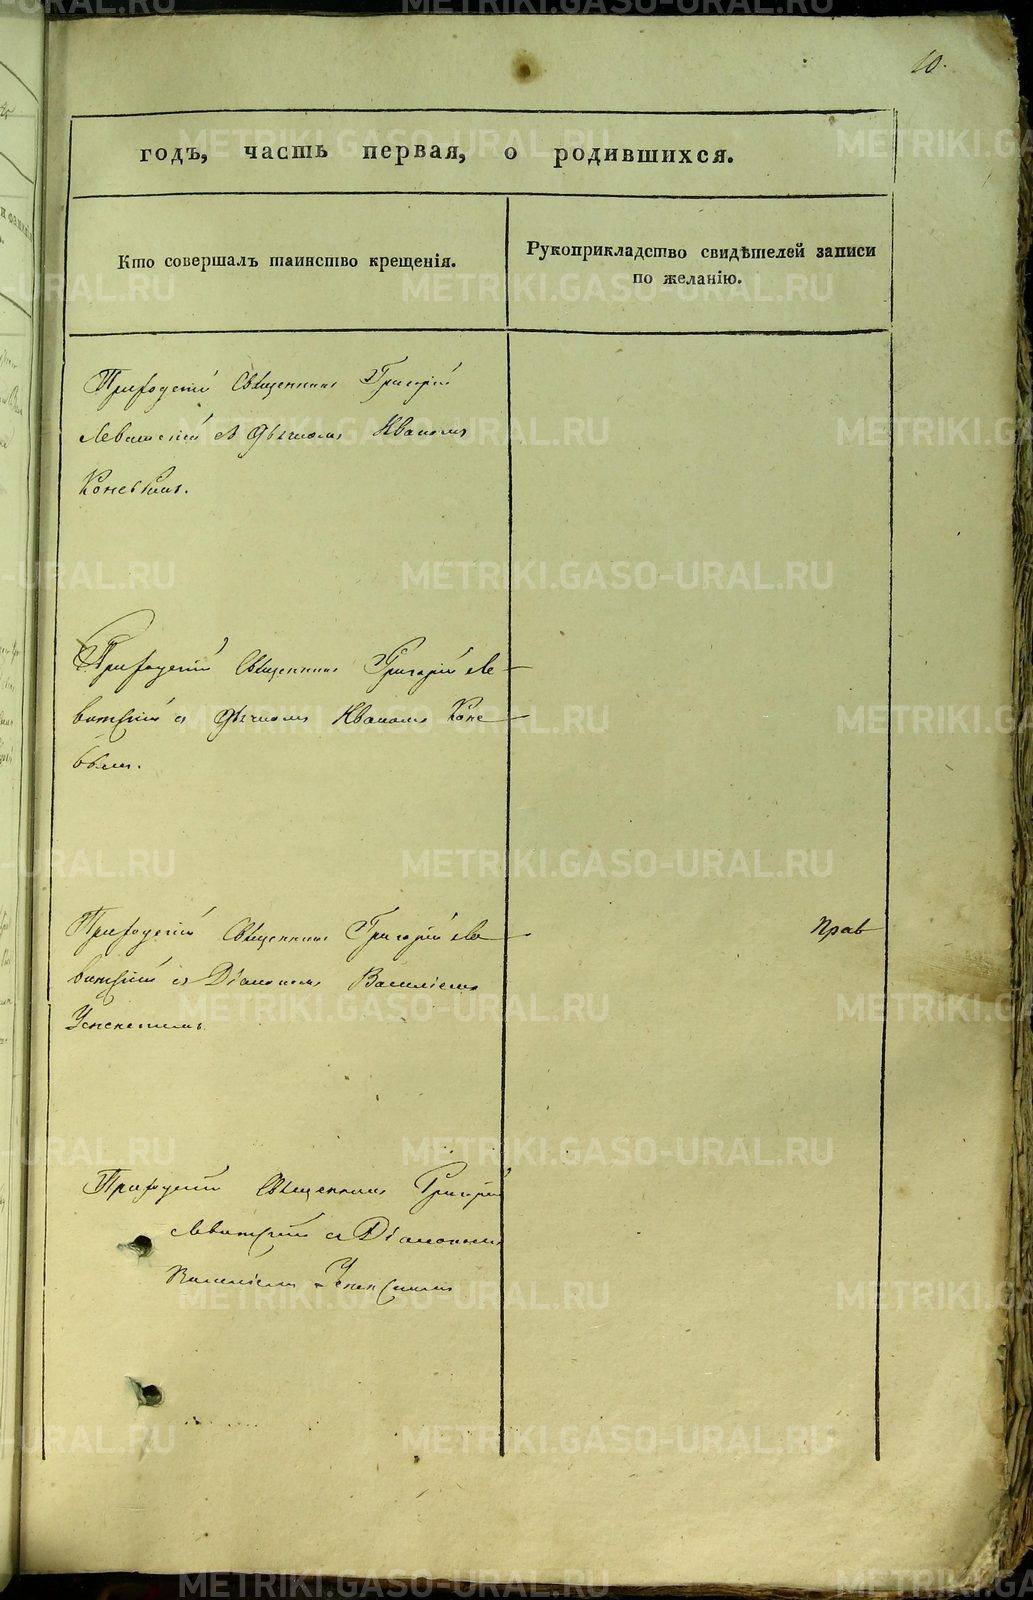 10.
годъ, часть первая, о родившихся.
Кто совершалъ таинство крещенія.
Рукоприкладство свидѣтелей записи
по желанію.
Приходскій Священникъ Григорій
Левитскій съ Дьячкомъ Иваномъ
Коневымъ.
Приходскій Священникъ Григорій Ле
витскій съ Дьячкомъ Иваномъ Коне
вымъ.
Приходскій Священникъ Григорій Ле
витскій съ Діакономъ Василіемъ
Успенскимъ
Прав
Приходскій Священникъ Григорій
Левитскій съ Діакономъ
Василіемъ Успенскимъ
METRIKI.GASO-URAL.RU